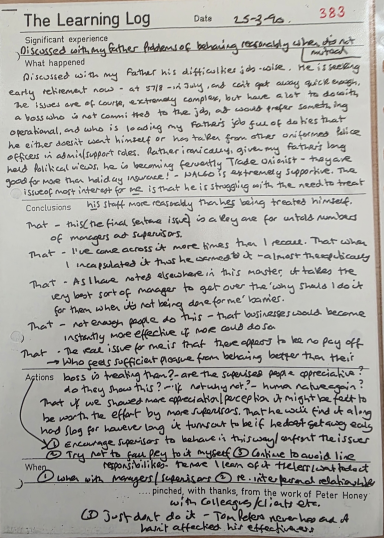 The Learning Log Date 25-3-90. 383
Significant experience
Discussed with my Father Problems of behaving reasonably when do not
instead
What happened
Discussed with my Father his difficulties job-wise. He is seeking
early retirement now - at 57/8 - in July, and can't get away quick enough.
The issues are of course, extremely complex, but have a lot to do with
a boss who is not committed to the job, as would prefer something
operational, and who is loading my Father's job full of duties that
he either doesn't want himself or has taken from other uniformed Police
officers in admin/support roles. Rather ironically, given my Father's long
held Political views, he is becoming fervently Trade Unionist - they are
good for more than holiday insurance! - NALGO is extremely supportive. The
issue of most interest for me is that he is struggling with the need to treat
his staff more reasonably than he's being treated himself.
Conclusions
That - this (the final sentence issue) is a key one for untold numbers
of managers and supervisors.
That - I've come across it more times than I recall. That when
I encapsulated it thus he warmed to it - almost therapeutically
That - As I have noted elsewhere in this master, it takes the
very best sort of manager to get over the 'why should I do it
for them when it's not being done for me' barrier.
That - not enough people do this - that businesses would become
instantly more effective if more could do so
That - The real issue for me is that there appears to be no pay off
→ Who feels sufficient pleasure from behaving better than their
Actions boss is treating them? - are the supervised people appreciative?
do they show this? - if not why not? - human nature again?
That if we showed more appreciation/perception it might be felt to
be worth the effort by more supervisors. That he will find it a long
hard slog for however long it turns out to be if he doesn't get away early
① Encourage supervisors to behave in this way/confront the issues
② Try not to fall prey to it myself ③ Continue to avoid line
responsibilities - the more I learn of it the less I want to do it
When
① when with managers/supervisors ② re. interpersonal relationships
....pinched, with thanks, from the work of Peter Honey
with colleagues/clients etc.
③ Just don't do it - Tom Peters never has and it
hasn't affected his effectiveness